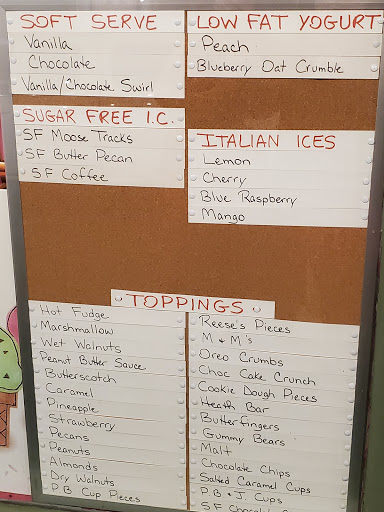 SOFT SERVE
Vanilla
Chocolate
Vanilla/Chocolate Swirl
SUGAR FREE I.C.
SF Moose Tracks
SF Butter Pecan
SF Coffee
LOW FAT YOGURT
Peach
Blueberry Oat Crumble
ITALIAN ICES
Lemon
Cherry
Blue Raspberry
Mango
TOPPINGS
Hot Fudge
Marshmallow
Wet Walnuts
Peanut Butter Sauce
Butterscotch
Caramel
Pineapple
Strawberry
Pecans
Peanuts
Almonds
Dry Walnuts
P.B Cup Pieces
Reese's Pieces
M & M's
Oreo Crumbs
Choc Cake Crunch
Cookie Dough Pieces
Heath Bar
Butterfingers
Gummy Bears
Malt
Chocolate Chips
Salted Caramel Cups
P.B & J. Cups
SF